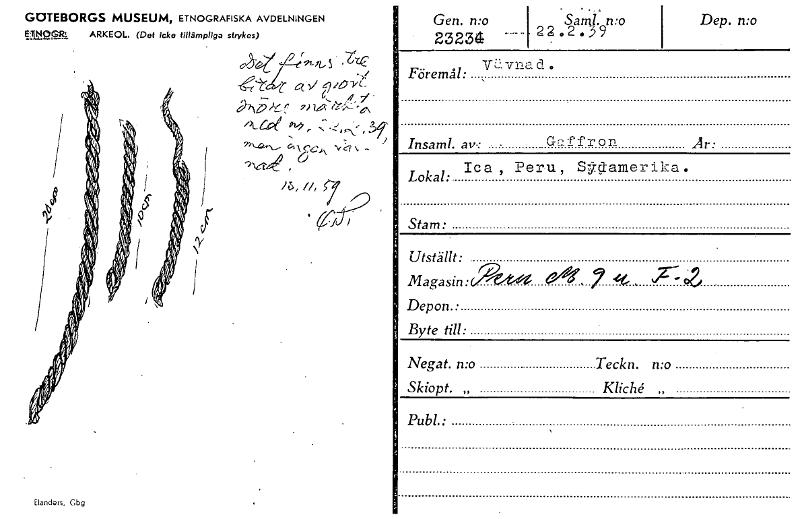 GÖTEBORGS MUSEUM, ETNOGRAFISKA AVDELNINGEN
ETNOGR. ARKEOL. (Det icke tillämpliga strykes)
Det finns tre
bitar av gjort
snöre märkta
med nr. 39,
men ingen väv-
nad.
18.11.59
20 cm
10 cm
12 cm
Elanders, Gbg
Gen. n:o Saml. n:o Dep. n:o
23234 22.2.39
Föremål: Vävnad.
Insaml. av: Gaffron År:
Lokal: Ica, Peru, Sydamerika.
Stam:
Utställt:
Magasin: Peru M. 9 u. F-2
Depon.:
Byte till:
Negat. n:o Teckn. n:o
Skiopt. „ Kliché „
Publ.: